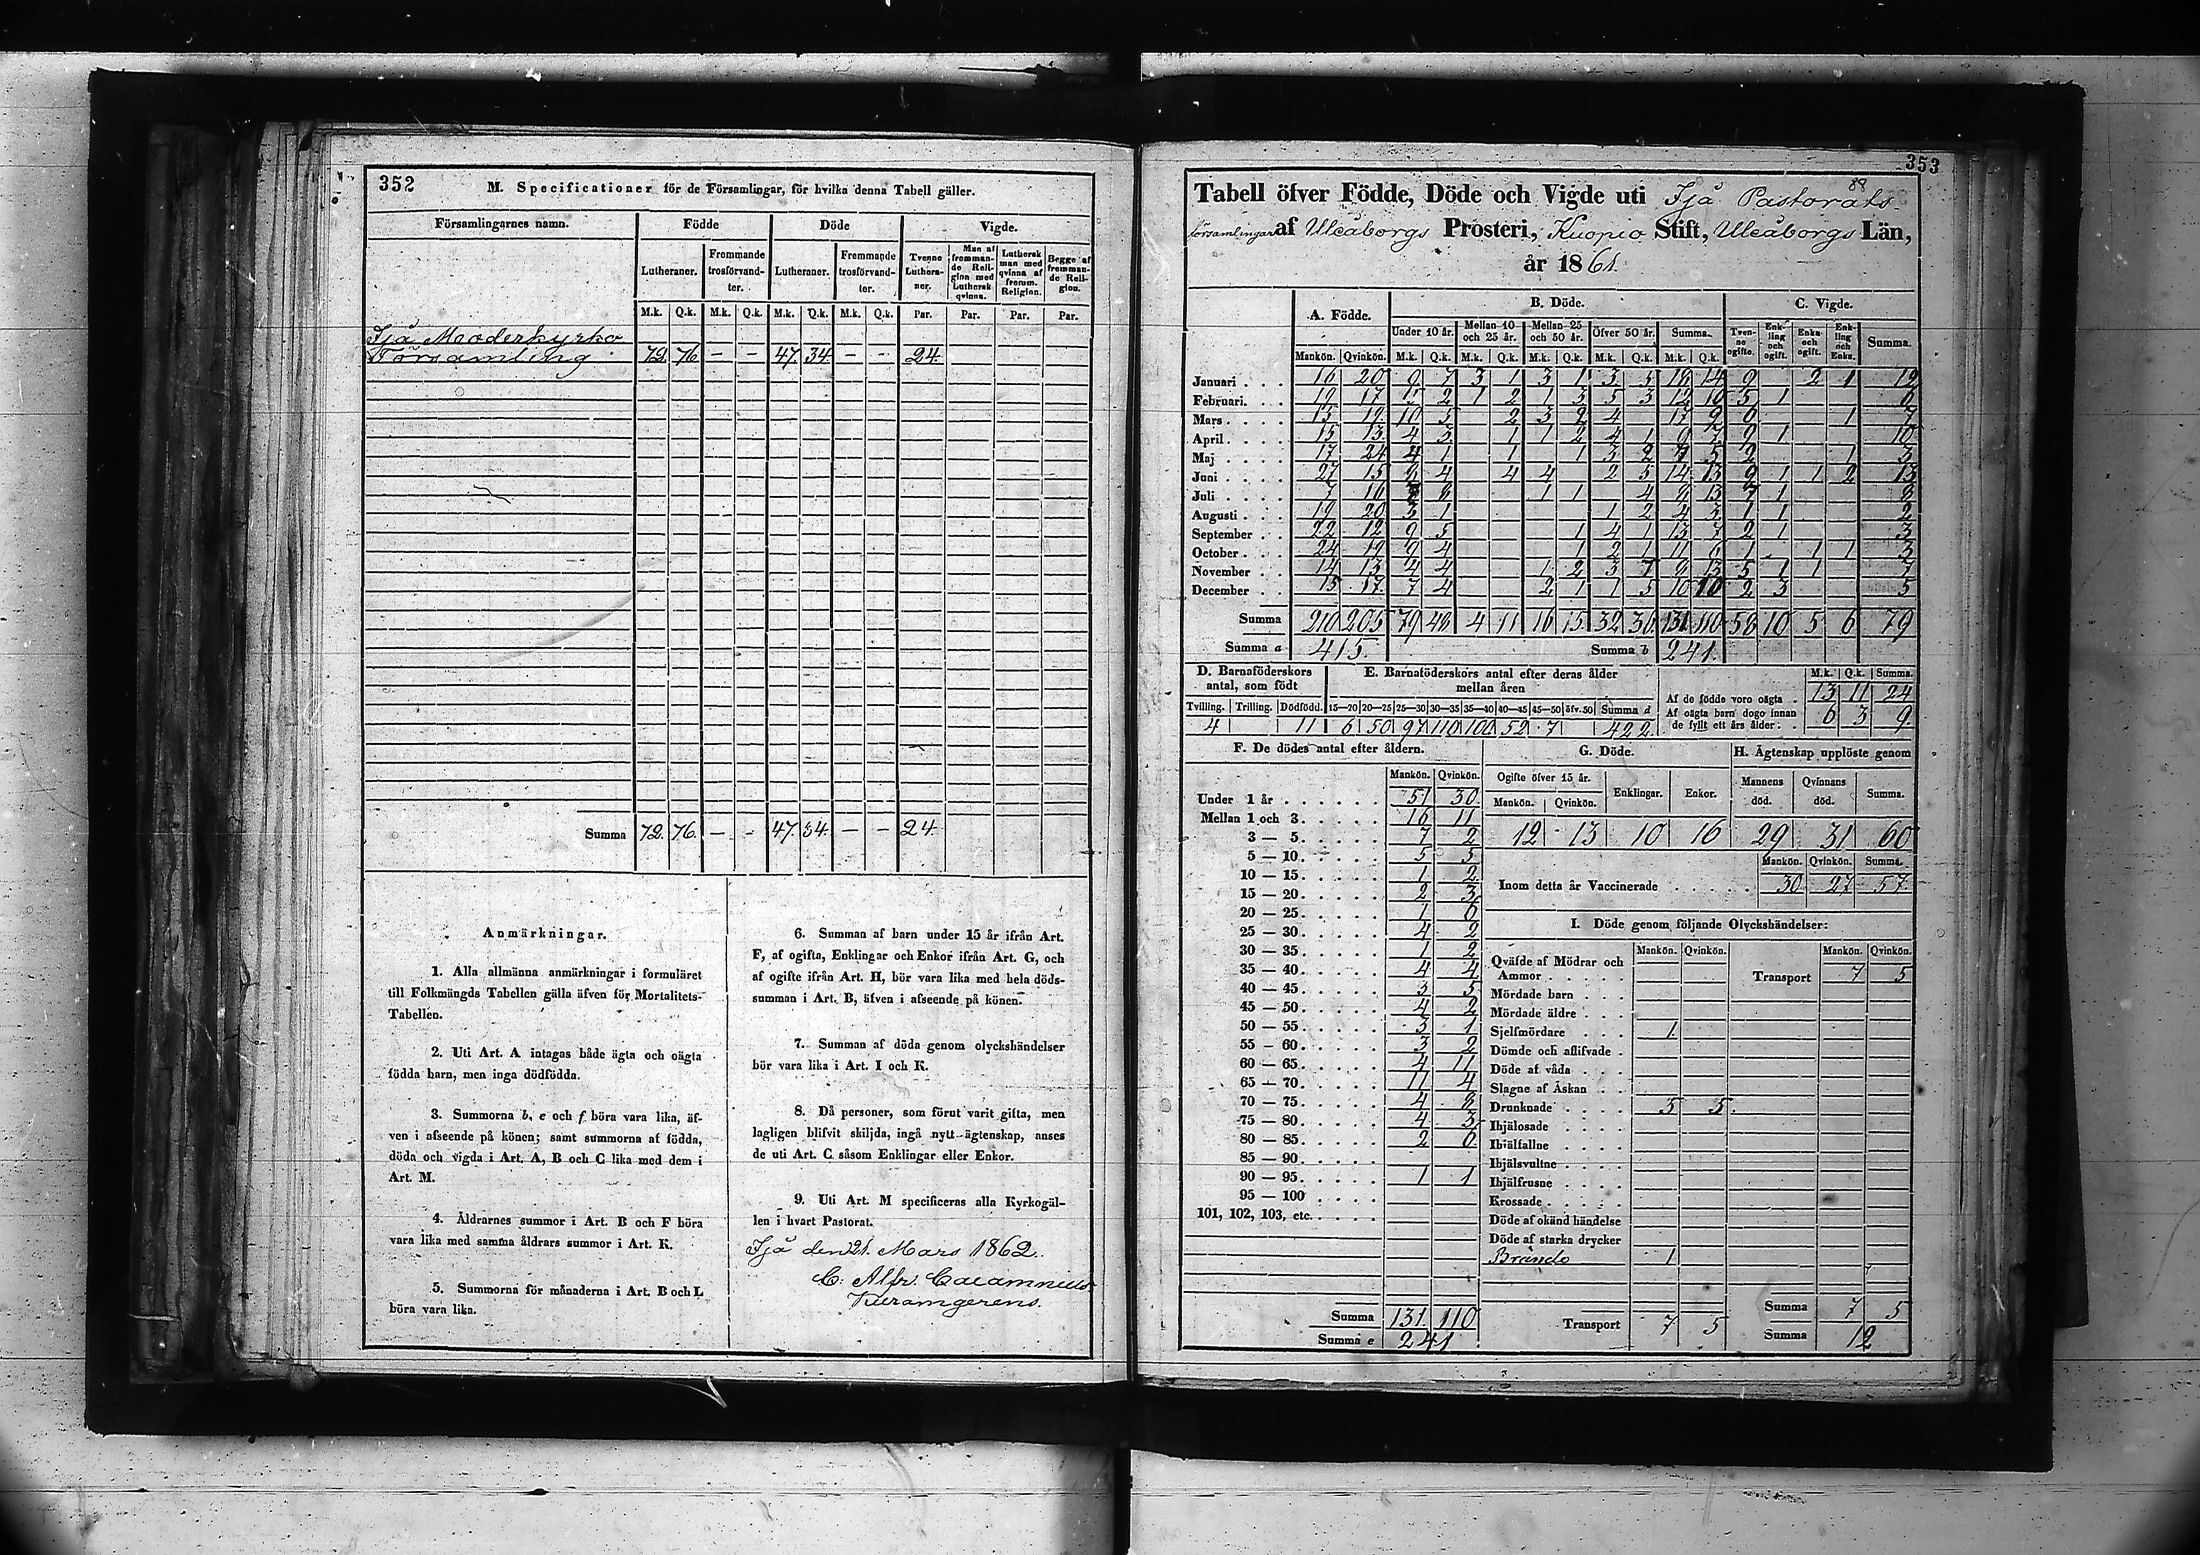 352 M. Specificationer för de Församlingar, för hvilka denna Tabell gäller.
Församlingarnes namn. Födde Döde Vigde.
Lutheraner. Fremmande trosförvandter. Lutheraner. Fremmande trosförvandter. Tvenne Lutheraner. Man af fremmande Religion med Luthersk qvinna. Luthersk man med qvinna af fremm. Religion. Begge af fremmande Religion.
M.k. Q.k. M.k. Q.k. M.k. Q.k. M.k. Q.k. Par. Par. Par. Par.
Ijå Moderkyrko
Församling 72 76 - - 47. 34 - - 24.
Summa 72. 76. - - 47. 34 - - 24
Anmärkningar.
1. Alla allmänna anmärkningar i formuläret
till Folkmängds Tabellen gälla äfven för Mortalitets-
Tabellen.
2. Uti Art. A intagas både ägta och oägta
födda barn, men inga dödfödda.
3. Summorna b, e och f böra vara lika, äf-
ven i afseende på könen; samt summorna af födda,
döda och vigda i Art. A, B och C lika med dem i
Art. M.
4. Åldrarnes summor i Art. B och F böra
vara lika med samma åldrars summor i Art. K.
5. Summorna för månaderna i Art. B och L
böra vara lika.
6. Summan af barn under 15 år ifrån Art.
F, af ogifta, Enklingar och Enkor ifrån Art. G, och
af ogifte ifrån Art. H, bör vara lika med hela döds-
summan i Art. B, äfven i afseende på könen.
7. Summan af döda genom olyckshändelser
bör vara lika i Art. I och K.
8. Då personer, som förut varit gifta, men
lagligen blifvit skiljda, ingå nytt ägtenskap, anses
de uti Art. C såsom Enklingar eller Enkor.
9. Uti Art. M specificeras alla Kyrkogäl-
len i hvart Pastorat.
Ijå den 21. Mars 1862.
C. Alfr.
353
88
Tabell öfver Födde, Döde och Vigde uti Ijå Pastorats
församlingar af Uleåborgs Prosteri, Kuopio Stift, Uleåborgs Län,
år 1861.
A. Födde. B. Döde. C. Vigde.
Under 10 år. Mellan 10 och 25 år. Mellan 25 och 50 år. Öfver 50 år. Summa. Tvenne ogifte. Enkling och ogift. Enka och ogift. Enkling och Enka. Summa.
Mankön. Qvinkön. M.k. Q.k. M.k. Q.k. M.k. Q.k. M.k. Q.k. M.k. Q.k.
Januari 16 20 9 7 3 1 3 1 3 5 18 14 9 2 1 12
Februari 19 17 2 1 2 1 3 5 3 12 10 5 1 6
Mars 10 5 2 3 2 4 17 9 6 1 7
April 15 13 4 3 1 1 2 4 1 9 7 9 1 10
Maj 17 24 4 1 1 1 3 2 7 5 2 1 3
Juni 27 15 8 4 4 4 2 5 14 13 9 1 1 2 13
Juli 7 16 8 1 1 4 13 7 1 8
Augusti 19 20 3 1 1 2 4 3 1 1 2
September 22 12 9 5 1 4 1 13 7 2 1 3
October 24 19 9 4 1 2 1 11 6 1 1 1 3
November 14 13 4 4 1 2 3 7 8 13 5 1 1 7
December 15 17 7 4 2 1 1 5 10 10 2 3 5
Summa 210 205 79 48 4 11 16 15 32 36 131 110 58 10 5 6 79
Summa a 415. Summa b 241.
D. Barnaföderskors antal, som födt
E. Barnaföderskors antal efter deras ålder mellan åren
M.k. Q.k. Summa.
Af de födde voro oägta 13 11 24
Af oägta barn dogo innan de fyllt ett års ålder 6 3 9.
Tvilling. Trilling. Dödfödd. 15—20 20—25 25—30 30—35 35—40 40—45 45—50 öfv.50 Summa d
4 11 6 50 97 110 100 52 7 422.
F. De dödes antal efter åldern.
Mankön. Qvinkön.
Under 1 år 51 30
Mellan 1 och 3 16 11
3 — 5 7 2
5 — 10 5 5
10 — 15 1 2
15 — 20 2 3
20 — 25 1 6
25 — 30 4 2
30 — 35 1 2
35 — 40 4 4
40 — 45 3 5
45 — 50 4 2
50 — 55 3 1
55 — 60 3 2
60 — 65 4 11
65 — 70 11 4
70 — 75 4 8
75 — 80 4 3
80 — 85 2 6
85 — 90
90 — 95 1 1
95 — 100
101, 102, 103, etc.
Summa 131. 110
Summa e 241.
G. Döde.
Ogifte öfver 15 år. Enklingar. Enkor.
Mankön. Qvinkön.
12 13 10 16
H. Ägtenskap upplöste genom
Mannens död. Qvinnans död. Summa.
29 31 60
Mankön. Qvinkön. Summa.
Inom detta år Vaccinerade 30 27 57
I. Döde genom följande Olyckshändelser:
Mankön. Qvinkön. Mankön. Qvinkön.
Qväfde af Mödrar och Ammor
Transport 7 5
Mördade barn
Mördade äldre
Sjelfmördare 1
Dömde och aflifvade
Döde af våda
Slagne af Åskan
Drunknade 5 5.
Ihjälosade
Ihjälfallne
Ihjälsvultne
Ihjälfrusne
Krossade
Döde af okänd händelse
Döde af starka drycker
Brände 1
Transport 7 5
Summa 7 5
Summa 12